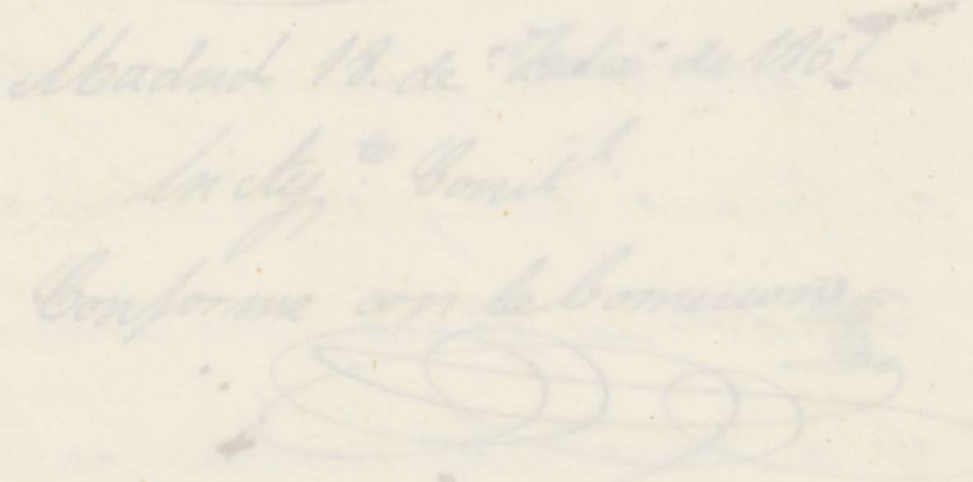 Madrid 18. de Julio de 1867
En Ay.to Const.l
Conforme con la Comision